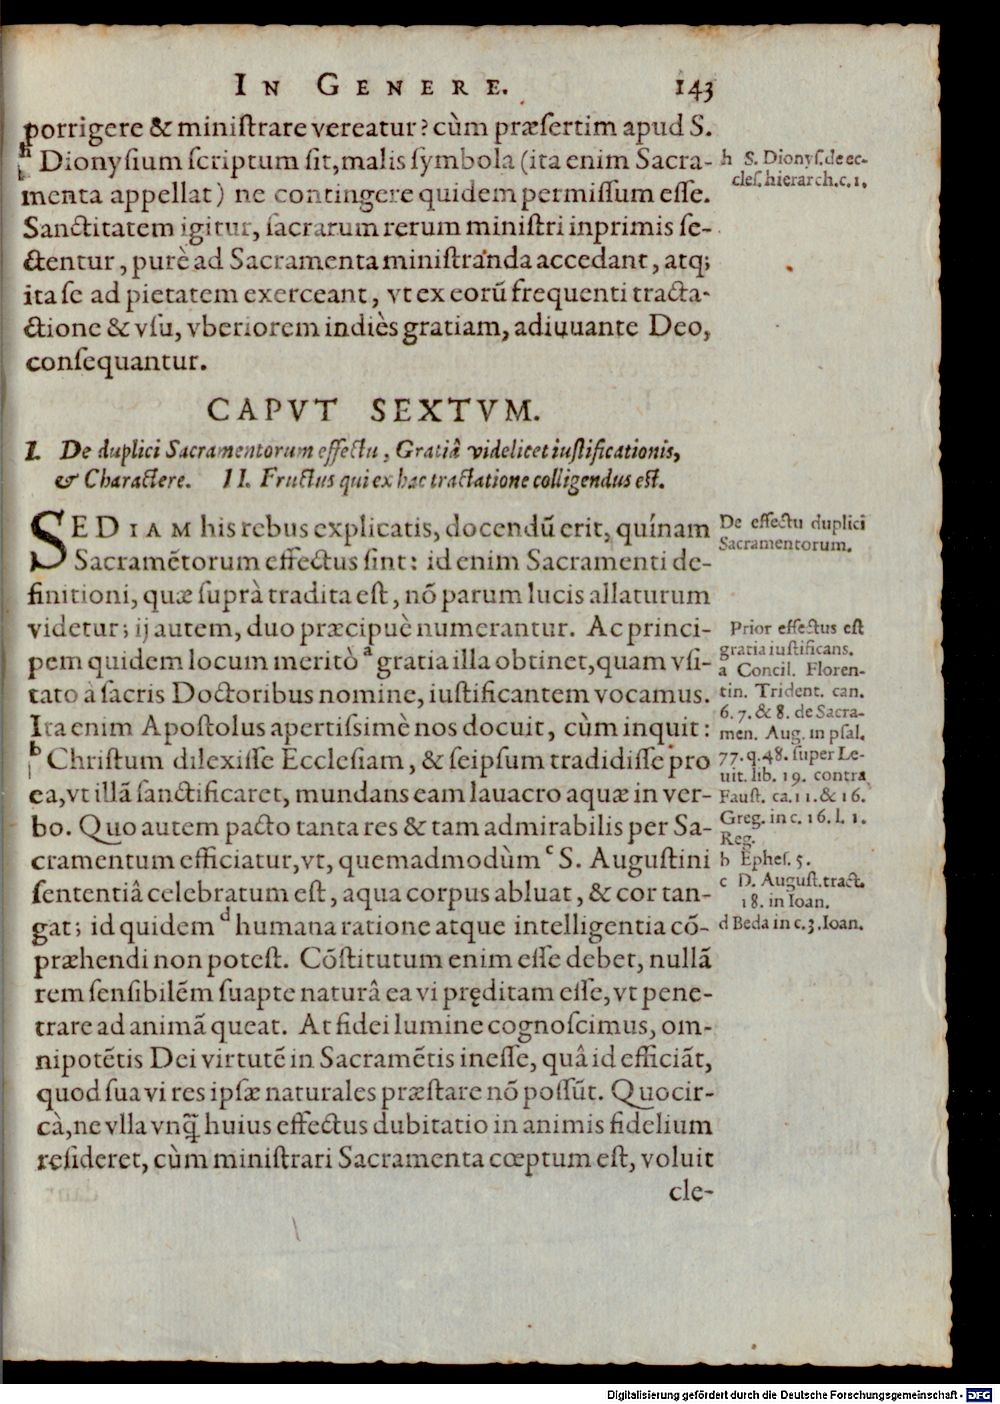 IN GENERE. 143
porrigere & miniſtrare vereatur? cùm præſertim apud S.
h Dionyſium ſcriptum ſit, malis ſymbola (ita enim Sacra-
menta appellat) ne contingere quidem permiſſum eſſe.
Sanctitatem igitur, ſacrarum rerum miniſtri inprimis ſe-
ctentur, purè ad Sacramenta miniſtranda accedant, atq;
ita ſe ad pietatem exerceant, vt ex eorũ frequenti tracta-
ctione & vſu, vberiorem indiès gratiam, adiuuante Deo,
conſequantur.
h S. Dionyſ. de ec-
cleſ. hierarch. c. 1.
CAPVT SEXTVM.
I. De duplici Sacramentorum effectu, Gratiâ videlicet iuſtificationis,
& Charactere. II. Fructus qui ex hac tractatione colligendus eſt.
SED IAM his rebus explicatis, docendũ erit, quínam
Sacramẽtorum effectus ſint: id enim Sacramenti de-
finitioni, quæ ſuprà tradita eſt, nõ parum lucis allaturum
videtur; ij autem, duo præcipuè numerantur. Ac princi-
pem quidem locum meritò a gratia illa obtinet, quam vſi-
tato à ſacris Doctoribus nomine, iuſtificantem vocamus.
Ita enim Apoſtolus apertiſsimè nos docuit, cùm inquit:
b Chriſtum dilexiſſe Eccleſiam, & ſeipſum tradidiſſe pro
ea, vt illã ſanctificaret, mundans eam lauacro aquæ in ver-
bo. Quo autem pacto tanta res & tam admirabilis per Sa-
cramentum efficiatur, vt, quemadmodùm c S. Auguſtini
ſententiâ celebratum eſt, aqua corpus abluat, & cor tan-
gat; id quidem d humana ratione atque intelligentia cõ-
præhendi non poteſt. Cõſtitutum enim eſſe debet, nullã
rem ſenſibilẽm ſuapte naturâ ea vi pręditam eſſe, vt pene-
trare ad animã queat. At fidei lumine cognoſcimus, om-
nipotẽtis Dei virtutẽ in Sacramẽtis ineſſe, quâ id efficiãt,
quod ſua vi res ipſæ naturales præſtare nõ poſſũt. Quocir-
cà, ne vlla vnq̃ huius effectus dubitatio in animis fidelium
reſideret, cùm miniſtrari Sacramenta cœptum eſt, voluit
cle-
De effectu duplici
Sacramentorum.
Prior effectus eſt
gratia iuſtificans.
a Concil. Floren-
tin. Trident. can.
6. 7. & 8. de Sacra-
men. Aug. in pſal.
77. q. 48. ſuper Le-
uit. lib. 19. contra
Fauſt. ca. 11. & 16.
Greg. in c. 16. l. 1.
Reg.
b Epheſ. 5.
c D. Auguſt. tract.
18. in Ioan.
d Beda in c. 3. Ioan.
Digitalisierung gefördert durch die Deutsche Forschungsgemeinschaft - DFG